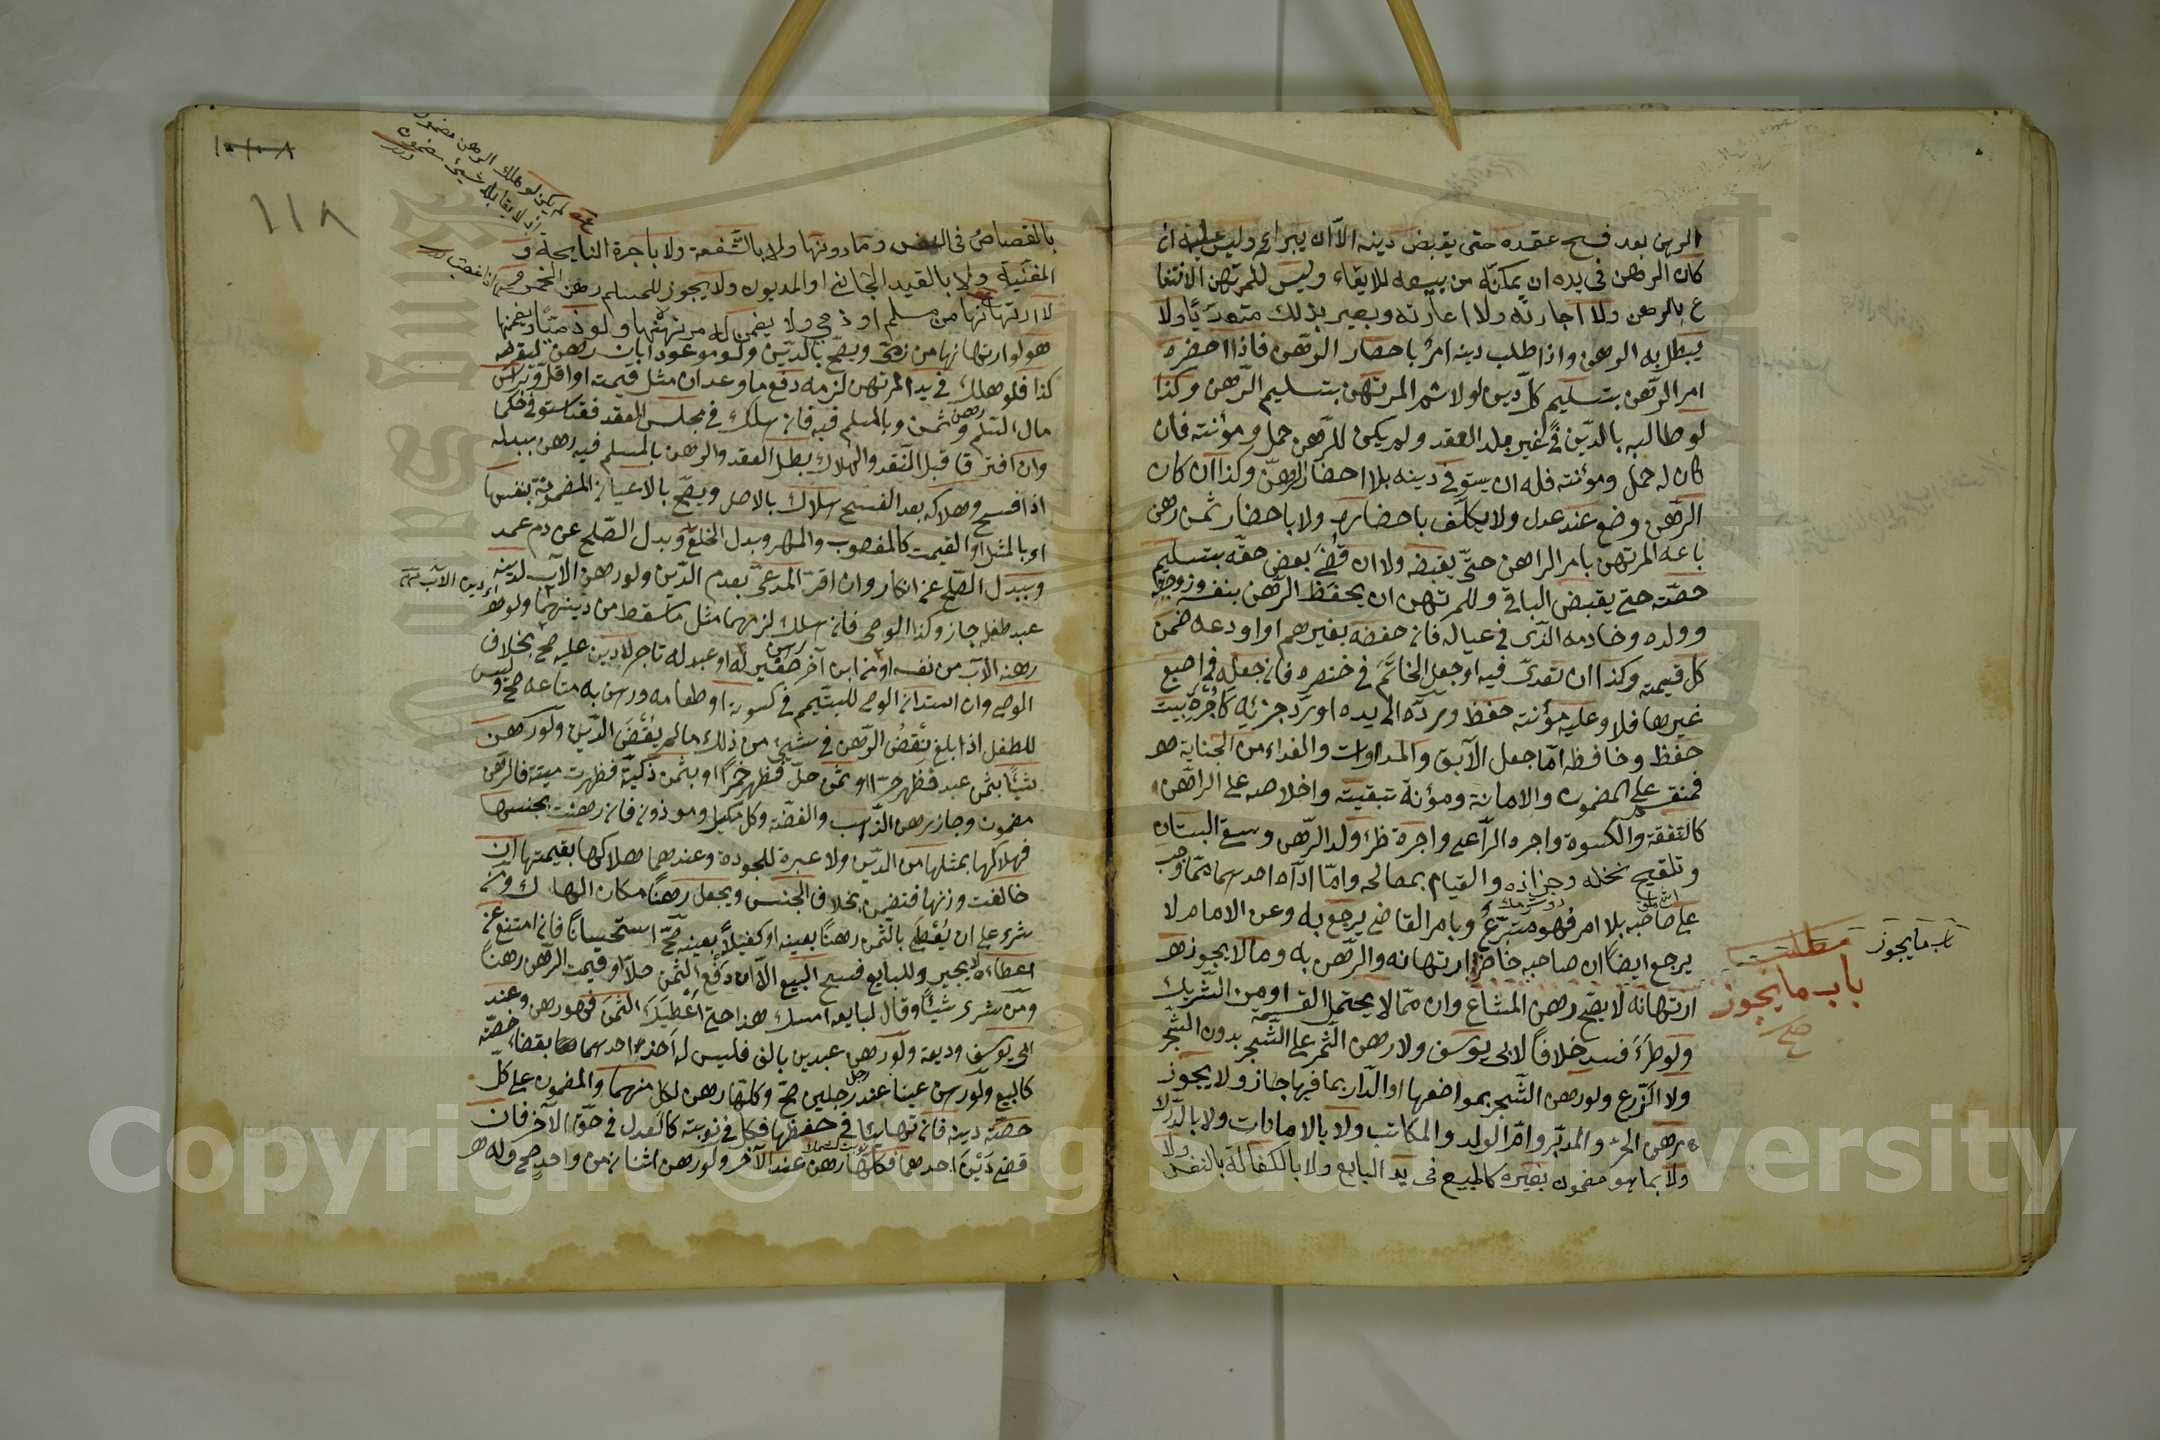 الرهن بعد فسخ عقده حتى يقبض دينه الا ان يبرأه وليس عليه ان
كان الرهن في يده ان يمكنه من بيعه للايفاء وليس للمرتهن الانتفا
ع بالرهن ولا اجارته ولا اعارته ويصير بذلك متعديا ولا
يبطل به الرهن واذا طلب دينه امر باحضار الرهن فاذا احضره
امر الرهن بتسليم كل دينه اولا ثم المرتهن بتسليم الرهن وكذا
لو طالبه بالدين في غير بلد العقد ولم يكن للرهن حمل ومؤنته فان
كان له حمل ومؤنته فله ان يستوفي دينه بلا احضار الرهن وكذا ان كان
الرهن وضع عند عدل ولا يكلف باحضاره ولا باحضار ثمن رهن
باعه المرتهن بامر الراهن حتى يقبضه ولا ان قضى بعض حقه بتسليم
حصته حتى يقبض الباقي وللمرتهن ان يحفظ الرهن بنفسه وزوجته
وولده وخادمه الذي في عياله فان حفظه بغيرهم او اودعه ضمن
كل قيمته وكذا ان تعدى فيه او جعل الخاتم في خنصره فان جعله في اصبع
غيرها فلا وعليه مؤنته حفظ ورده الى يده او رد جزئه كاجرة بيت
حفظ وحافظه اما جعل الآبق والمداوات والفداء من الجناية هـ
فمنقسم على المضمون والامانة ومؤنة تبقيته واخلاصه على الراهن
كالنفقة والكسوة واجره الراعي واجرة ظئر ولد الرهن وسقي البستان
وتلقيح نخله وجزازه والقيام بمصالحه واما اداه احدهما مما وجب
على صاحبه بلا امر فهو متبرع وبامر القاضي يرجع به وعن الامام لا
يرجع ايضا ان صاحبه حاضرا
باب ما يجوز
مطلب
باب ما يجوز
ارتهانه والرهن به وما لا يجوز هـ
ارتهانه لا يصح رهن المشاع وان مما لا يحتمل القسمة او من الشريك
ولو طرأ فسد خلافا لابي يوسف ولا رهن الثمر على الشجر بدون الشجر
ولا الزرع ولو رهن الشجر بمواضعها او الدار بما فيها جاز ولا يجوز
رهن الحر والمدبر وام الولد والمكاتب ولا بالامانات ولا بالدرك
ولا بما هو مضمون بغيره كالمبيع في يد البايع ولا بالكفالة بالنفس ولا
١١٨
بالقصاص في النفس وما دونها ولا بالشفعة ولا باجرة النايحة و
المغنية ولا بالعبد الجاني او المديون ولا يجوز للمسلم رهن الخمر و
لا ارتهانها من مسلم او ذمي ولا يضمن له مرتهنها ولو ذميا ويضمنها
هو لو ارتهانها من ذمي ويصح بالدين ولو موعودا بان رهن ليقرضه
كذا فلو هلك في يد المرتهن لزمه دفع ما وعد ان مثل قيمته او اقل وبرأس
مال السلم وثمن وبالمسلم فيه فان هلك في مجلس العقد فقد استوفى حكما
وان افترقا قبل النقد والهلاك بطل العقد والرهن بالمسلم فيه رهن ببدله
اذا فسخ وهلاكه بعد الفسخ هلاك بالاصل ويصح بالاعيان المضمونة بنفسها
او بالمثل او القيمت كالمغصوب والمهر وبدل الخلع وبدل الصلح عن دم عمد
وببدل الصلح عن انكار وان اقر المدعى بعدم الدين ولو رهن الاب لدينه
عبد طفله جاز وكذا الوصي فان هلك لزمهما مثل ما سقط من دينهما ولو
رهنه الاب من نفسه او من ابن آخر صغير له او عبد له تاجر لا دين عليه صح بخلاف
الوصي وان استدان الوصي لليتيم في كسوته او طعامه ورهن به متاعه صح وليس
للطفل اذا بلغ نقض الرهن في شيئ من ذلك ما لم يقض الدين ولو رهن
شيئا بثمن عبد فظهر حرا او بثمن خل فظهر خمرا او بثمن ذكية فظهرت ميتة فالرهن
مضمون وجاز رهن الذهب والفضة وكل مكيل وموزون فان رهنت بجنسها
فهلاكها بمثلها من الدين ولا عبرة للجودة وعندهما هلاكها بقيمتها ان
خالفت وزنها فتضمن بخلاف الجنس ويجعل رهنا مكان الهالك ومن
شرى على ان يعطي بالثمن رهنا بعينه او كفيلا بعينه صح استحسانا فان امتنع عن
اعطاءه لا يجبر وللبايع فسخ البيع الا ان دفع الثمن حالا او قيمت الرهن رهنا
ومن شرى شيئا وقال لبايعه امسك هذا حتى اعطيك الثمن فهو رهن وعند
ابي يوسف وديعة ولو رهن عبدين بالف فليس له اخذ احدهما بقضاء حصته
كالبيع ولو رهن عينا عند رجلين صح وكلها رهن لكل منهما والمضمون على كل
حصته دينه فان تهايئا في حفظها فكل في نوبته كالعدل في حق الآخر فان
قضى دين احدهما فكلها رهن عند الآخر ولو رهن اثنان من واحد صح وله هـ
Copyright © King Saud University